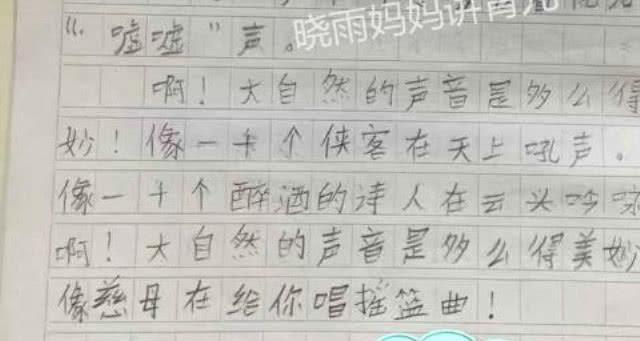 晓雨妈妈讲育儿
“嘘嘘”声。
啊！大自然的声音是多么得
妙！像一千个侠客在天上吼声。
像一十个醉酒的诗人在云头吟
啊！大自然的声音是多么得美妙
像慈母在给你唱摇篮曲！